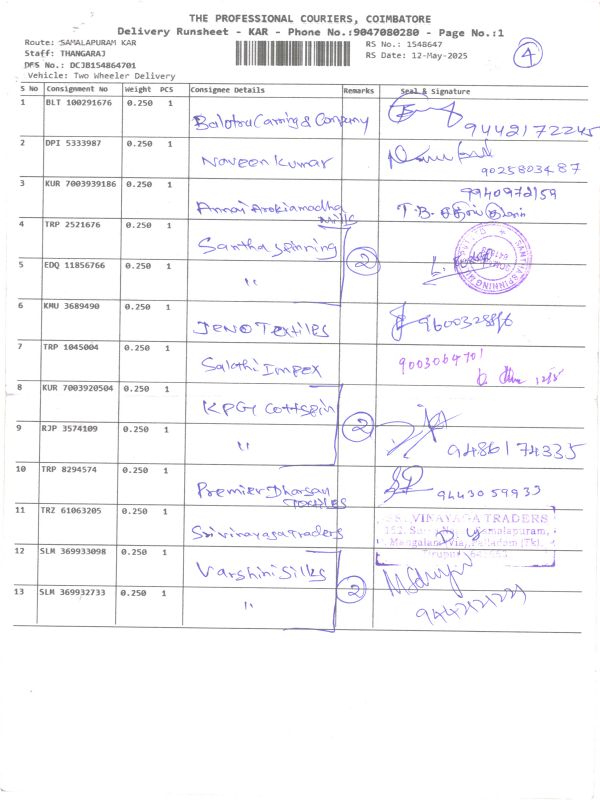 THE PROFESSIONAL COURIERS, COIMBATORE
Delivery Runsheet - KAR - Phone No.:9047080280 - Page No.:1
Route: SAMALAPURAM KAR
RS No.: 1548647
4
Staff: THANGARAJ
RS Date: 12-May-2025
DFS No.: DCJB154864701
Vehicle: Two Wheeler Delivery
S No Consignment No Weight PCS Consignee Details Remarks Seal & Signature
1 BLT 100291676 0.250 1 Company 9442172245
2 DPI 5333987 0.250 1 Naveen Kumar 9025803487
3 KUR 7003939186 0.250 1 Annai Arokiamadha Mills 9940972159
T.B.
4 TRP 2521676 0.250 1 Santha Spinning 2
5 EDQ 11856766 0.250 1 "
6 KMU 3689490 0.250 1 JENO Textiles
7 TRP 1045004 0.250 1 Sakthi Impex 9003064701
12/5
8 KUR 7003920504 0.250 1 KPG Cottspin 2
9 RJP 3574109 0.250 1 " 9486174335
10 TRP 8294574 0.250 1 Premier Dharsan Textiles 9443059933
11 TRZ 61063205 0.250 1 Sri vinayaga traders
VINAYAGA TRADERS
12 SLM 369933098 0.250 1 Varshini Silks 2
13 SLM 369932733 0.250 1 "